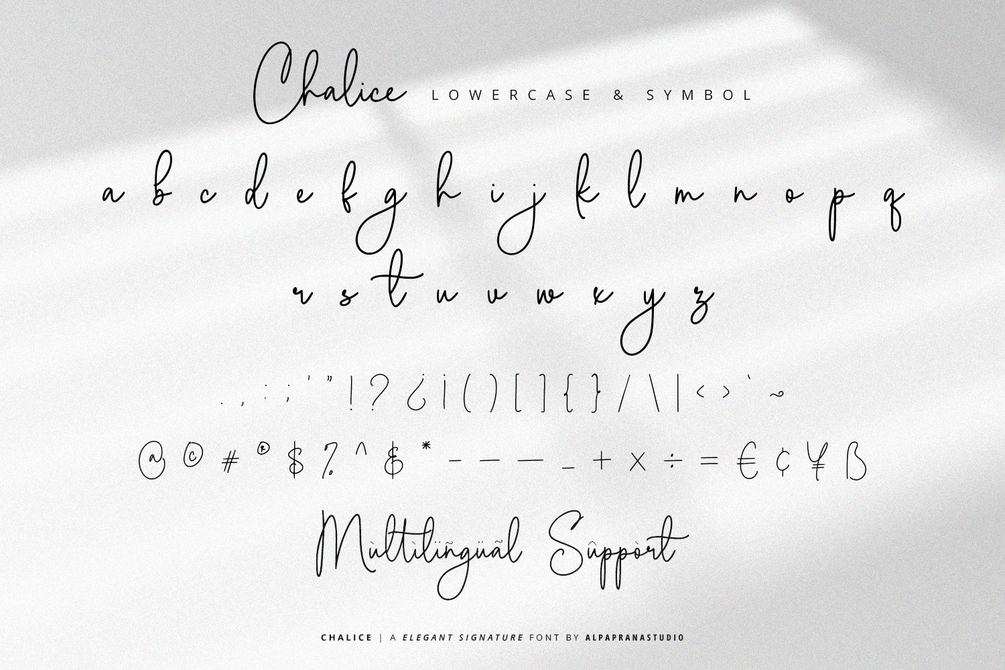 Chalice LOWERCASE & SYMBOL
a b c d e f g h i j k l m n o p q
r s t u v w x y z
. , : ; ' " ! ? ¿ ¡ ( ) [ ] { } / \ | < > ` ~
@ © # ® $ % ^ & * - – — _ + × ÷ = € ¢ ¥ ß
Mùltilìñgüãl Sûppòrt
CHALICE | A ELEGANT SIGNATURE FONT BY ALPAPRANASTUDIO